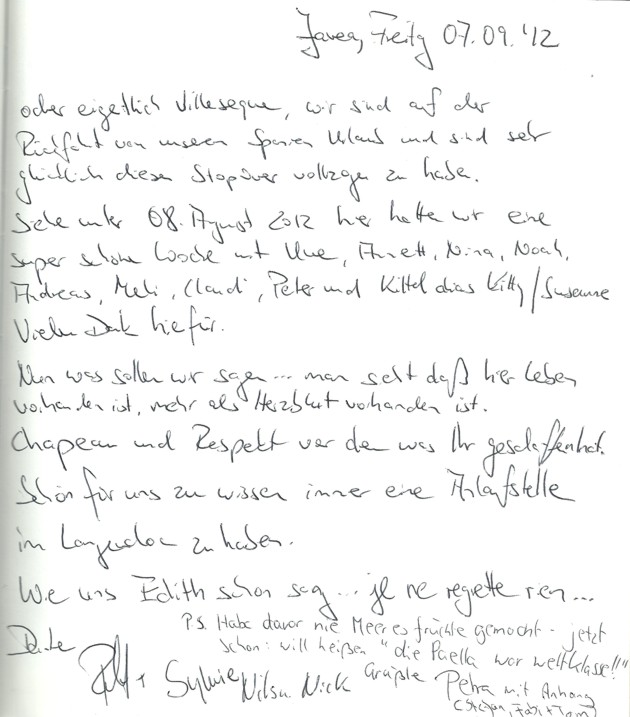 Javea, Freitg 07.09.'12
oder eigetlich Villeseque, wir sind auf der
Rückfaht von unseren Spanien Urlaub und sind sehr
glücklich diesen Stopover vollzogen zu haben.
Siehe unter 08. August 2012 hier hatte wir eine
super schöne Woche mit Uwe, Annett, Nina, Noah,
Andreas, Meli, Claudi, Peter und Kittel dias Kitty/Susanne
Vielen Dank hiefür.
Nun was sollen wir sagen... man seht daß hier Leben
vorhanden ist, mehr als Herzblut vorhanden ist.
Chapeau und Respekt vor dem was Ihr geschaffen habt.
Schön für uns zu wissen immer eine Anlaufstelle
im Languedoc zu haben.
Wie uns Edith schon sag... je ne regrette rien...
P.S. Habe davor nie Meeresfrüchte gemocht - jetzt
schon: will heißen "die Paella war weltklasse!!"
Danke
+ Sylvie Nilsu Nick Grüßle Petra mit Anhang
(Stefan, Fabi + Tom)